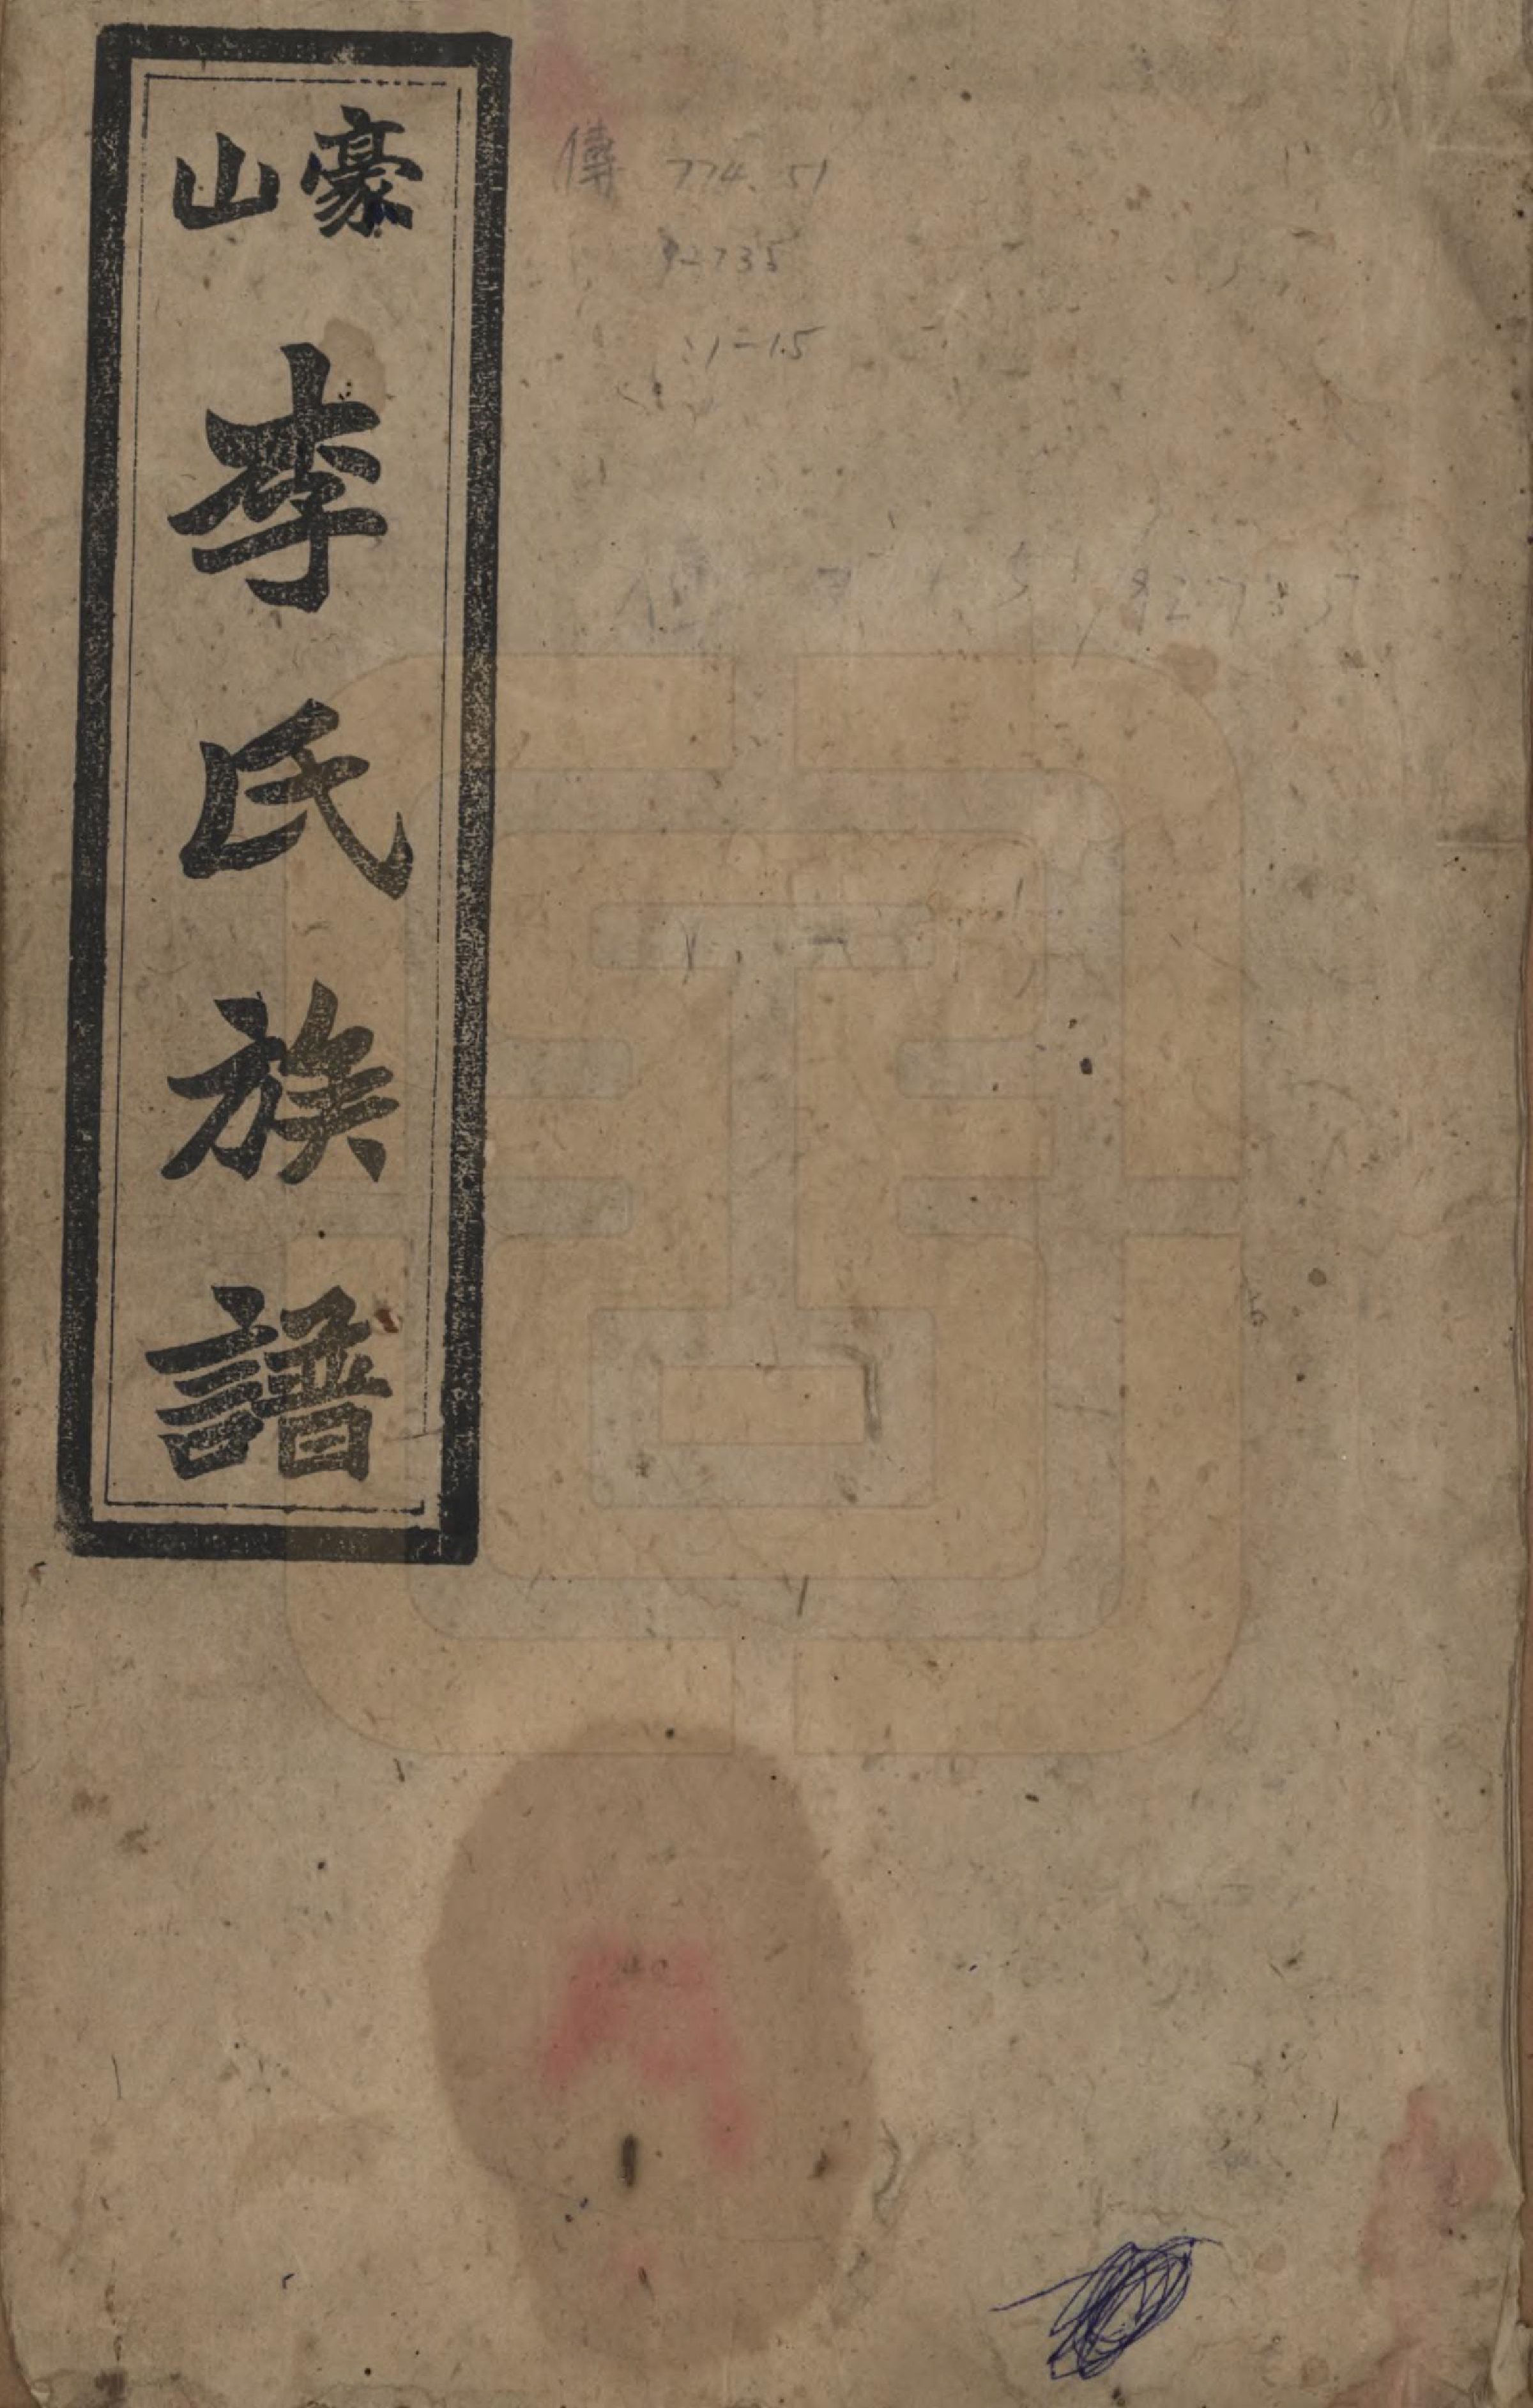 豪山
李氏族譜
傳 774.51
92735
:1-15